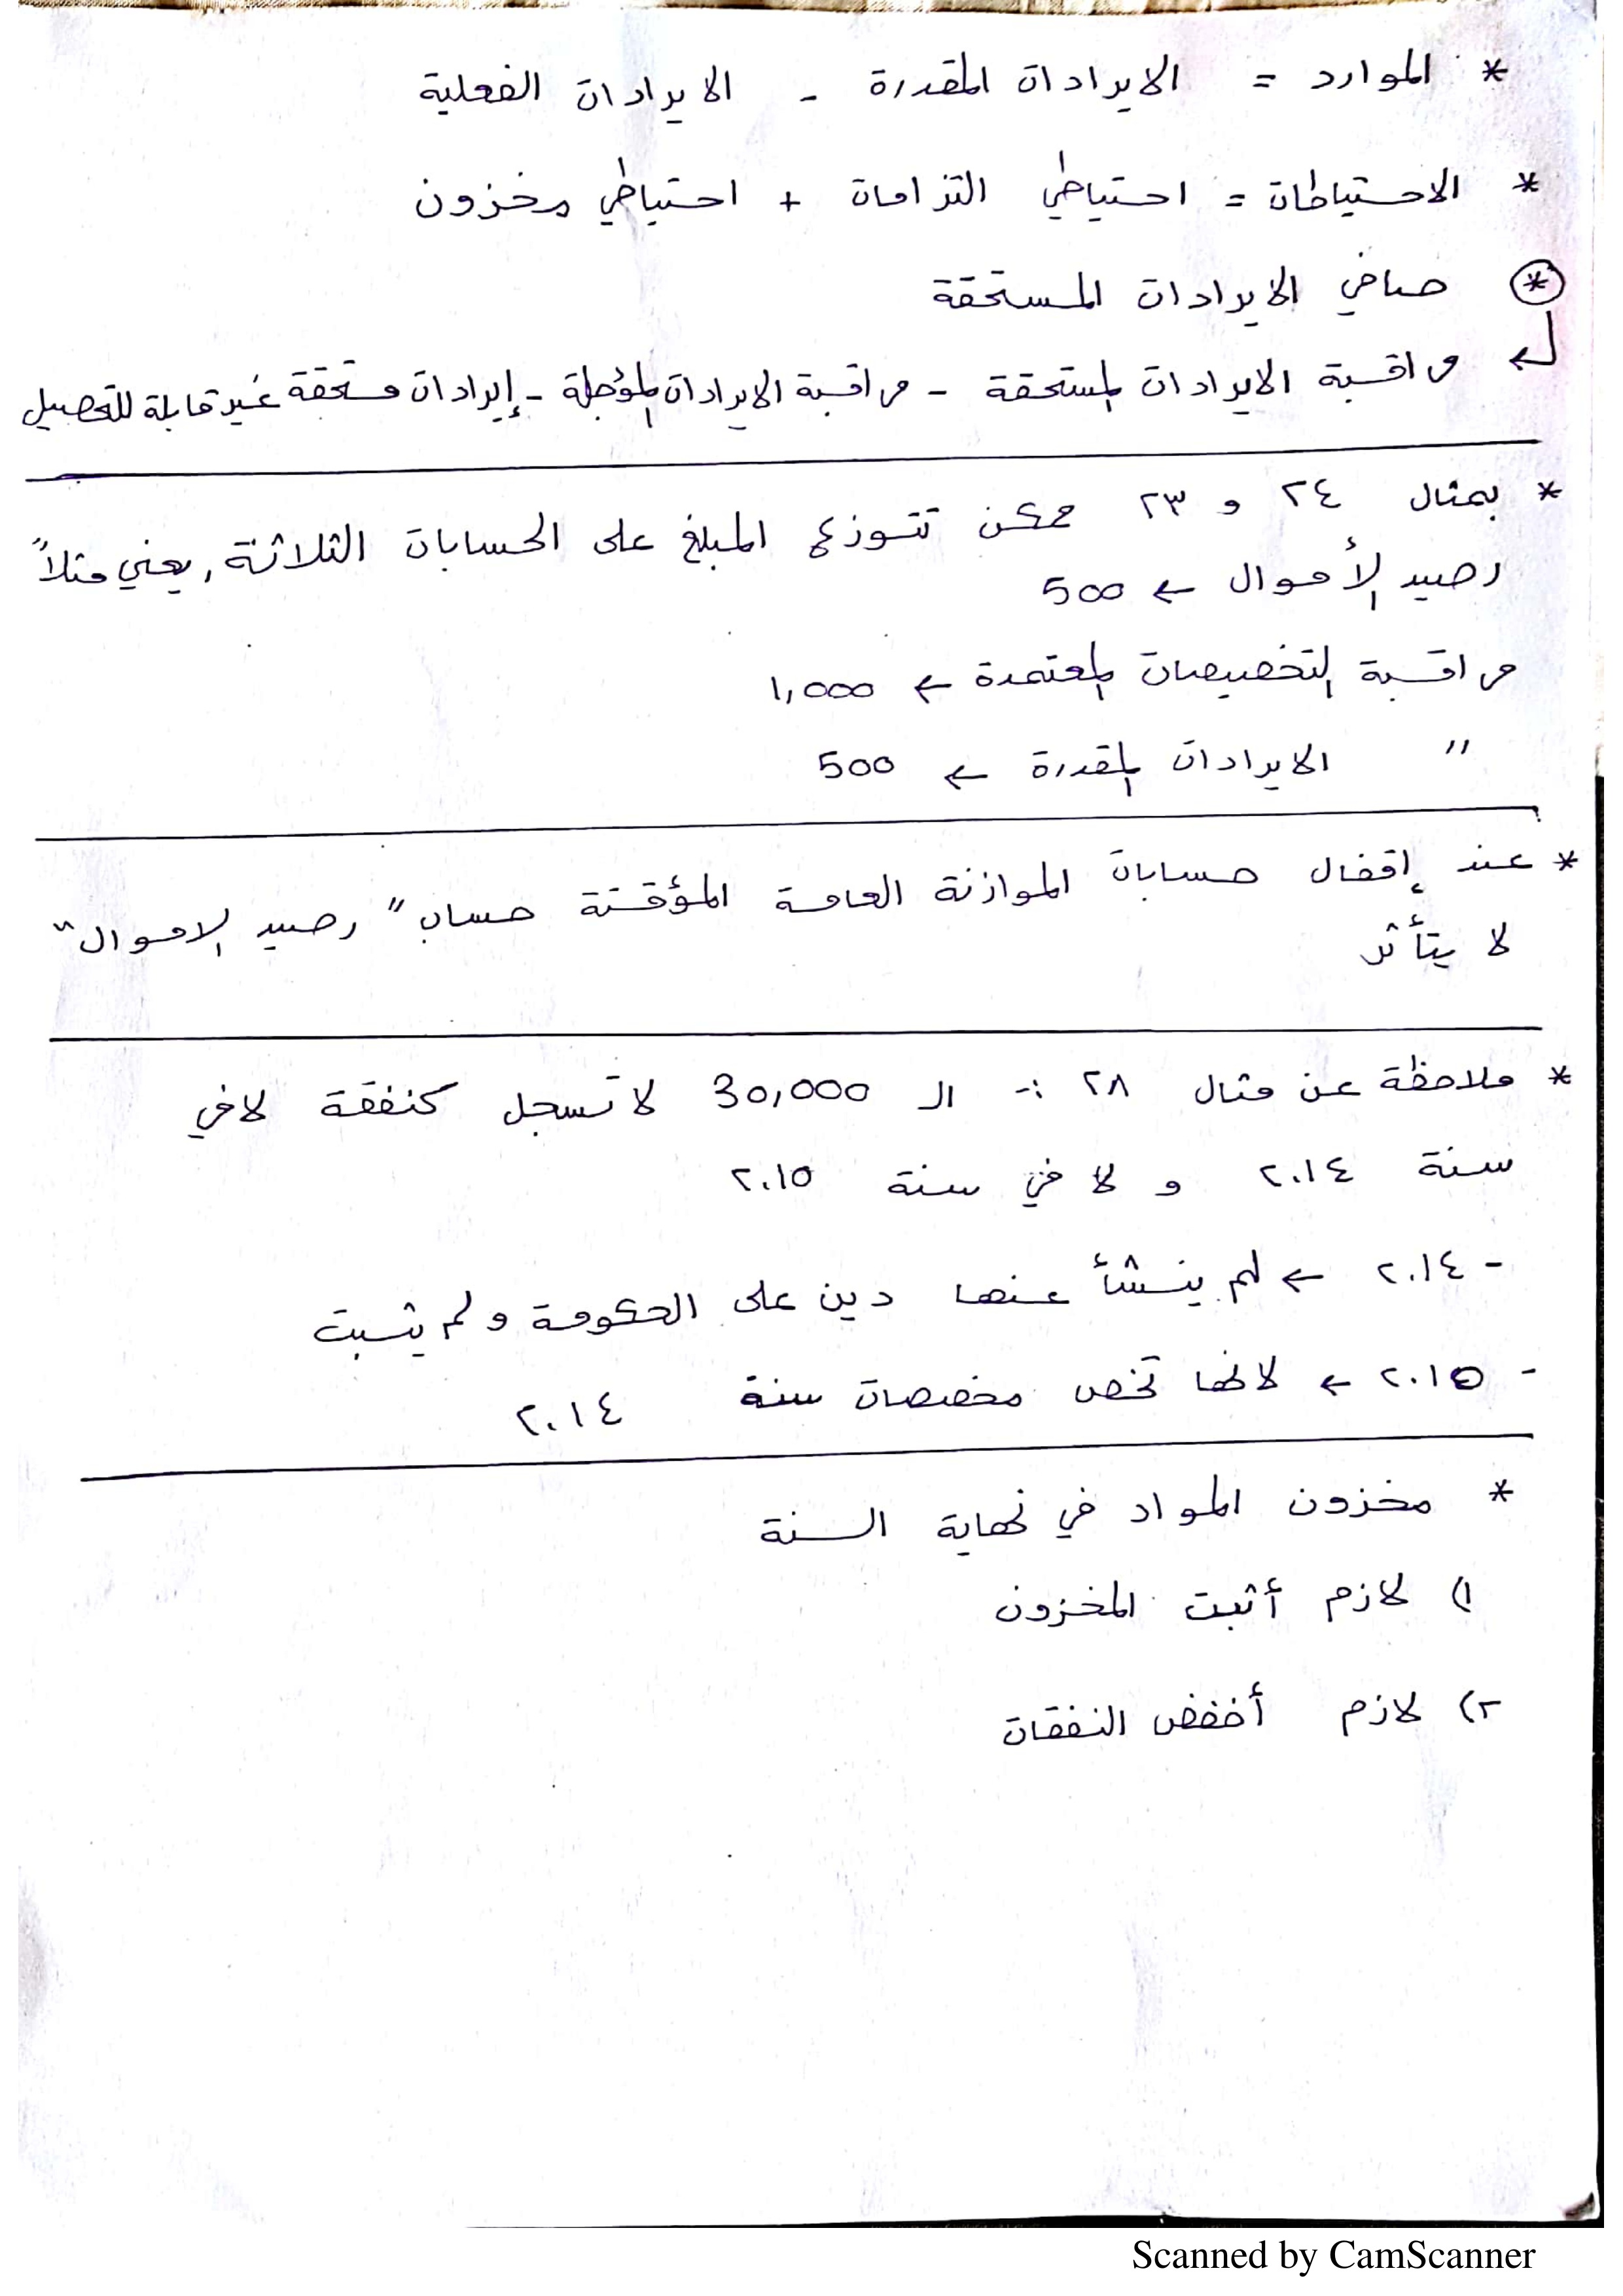 * الموارد = الايرادات المقدرة - الايرادات الفعلية
* الاحتياطات = احتياطي التزامات + احتياطي مخزون
* صافي الايرادات المستحقة
مراقبة الايرادات المستحقة - مراقبة الايرادات المؤجلة - إيرادات مستحقة غير قابلة للتحصيل
* بمثال ٢٤ و ٢٣ ممكن تتوزع المبلغ على الحسابات الثلاثة, يعني مثلاً
رصيد الأموال ← 500
مراقبة التخصيصات المعتمدة ← 1,000
" الايرادات المقدرة ← 500
* عند إقفال حسابات الموازنة العامة المؤقتة حساب "رصيد الاموال"
لا يتأثر
* ملاحظة عن مثال ٢٨ :- الـ 30,000 لا تسجل كنفقة لا في
سنة ٢٠١٤ و لا في سنة ٢٠١٥
- ٢٠١٤ ← لم ينشأ عنها دين على الحكومة و لم يثبت
- ٢٠١٥ ← لانها تخص مخصصات سنة ٢٠١٤
* مخزون المواد في نهاية السنة
١) لازم أثبت المخزون
٢) لازم أخفض النفقات
Scanned by CamScanner